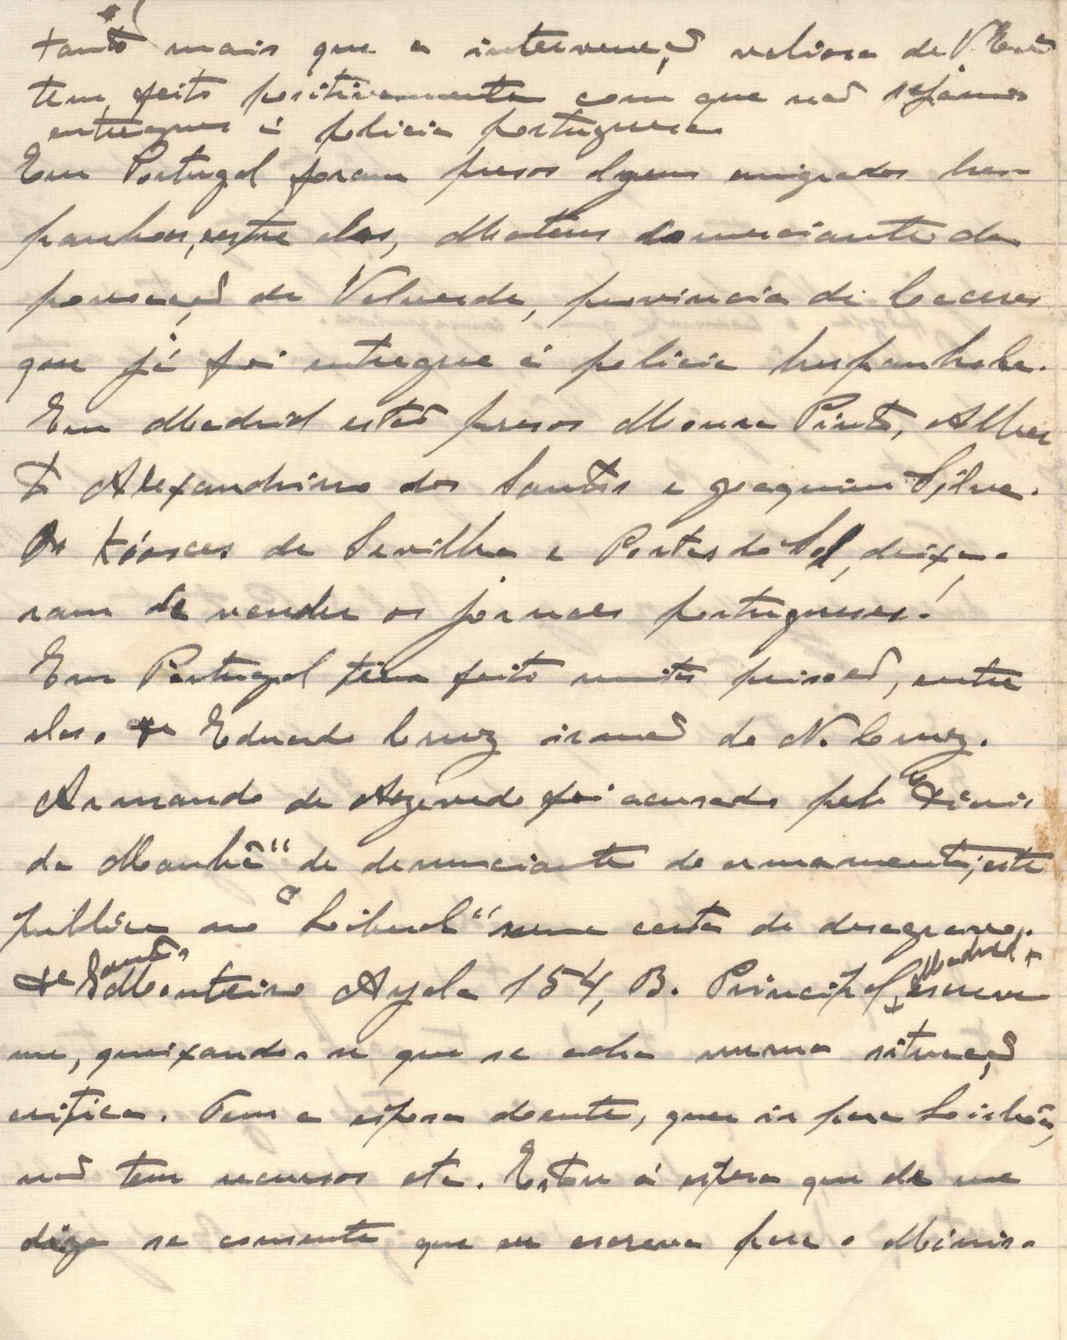 tanto mais que a intervenção valiosa de V. Exª
tem feito positivamente com que não sejamos
entregues á policia portuguesa
Em Portugal foram presos alguns emigrados hes-
panhoes, entre eles, Mateus comerciante da
povoação de Valverde, provincia de Caceres
que já foi entregue á policia hespanhola.
Em Madrid estão presos Moura Pinto, Alber
to Alexandrino dos Santos e Joaquim Silva.
Os kioscos de Sevilha e Portas do Sol, deixa-
ram de vender os jornaes portugueses!
Em Portugal tem feito muitas prisões, entre
elas. Eduardo Cruz irmão do N. Cruz.
Armando de Azevedo foi acusado pelo "Diario
da Manhã" de denunciante do armamento; este
publica no "Liberal" numa carta de desagravo.
Santos
Monteiro Ayala 154, B. Principal, Madrid escreve
me, queixando-se que se acha numa situação
critica. Tem a esposa doente, quer ir para Lisbôa,
não tem recursos etc. Estou á espera que me
diga se consente que eu escreva para o Minis-